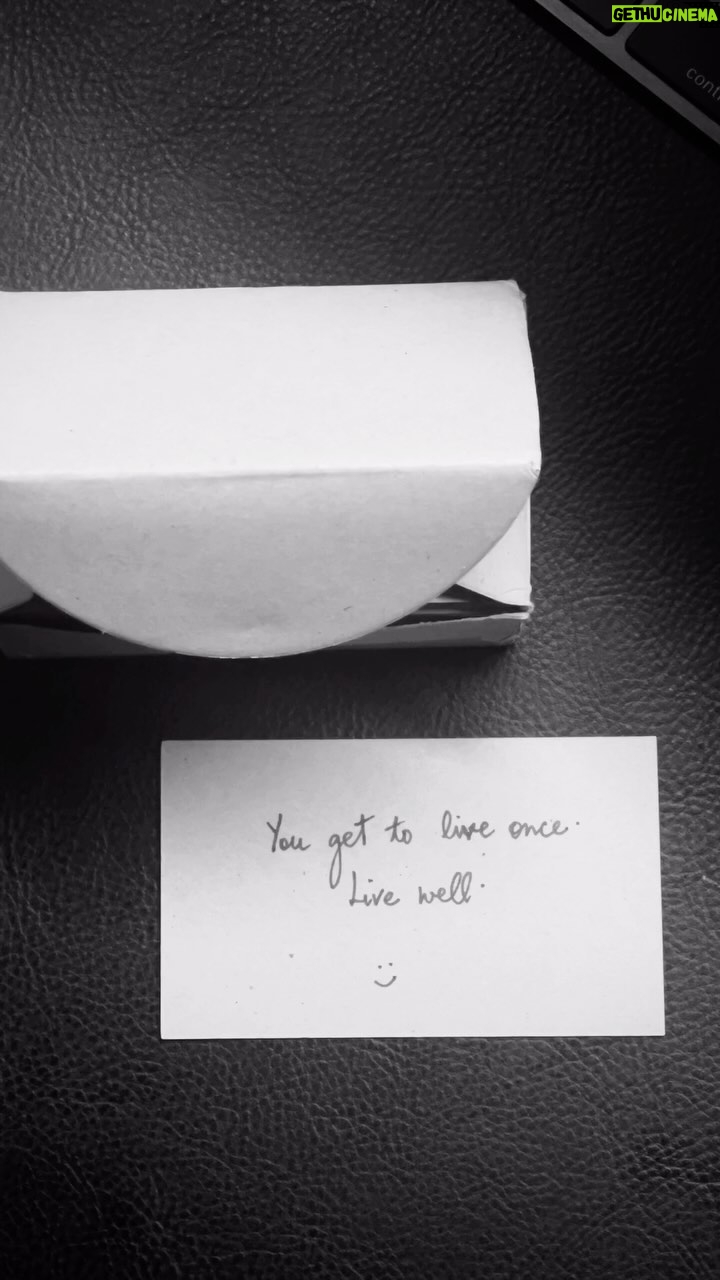 GETHUCINEMA
cont
You get to live once.
Live well.
:)